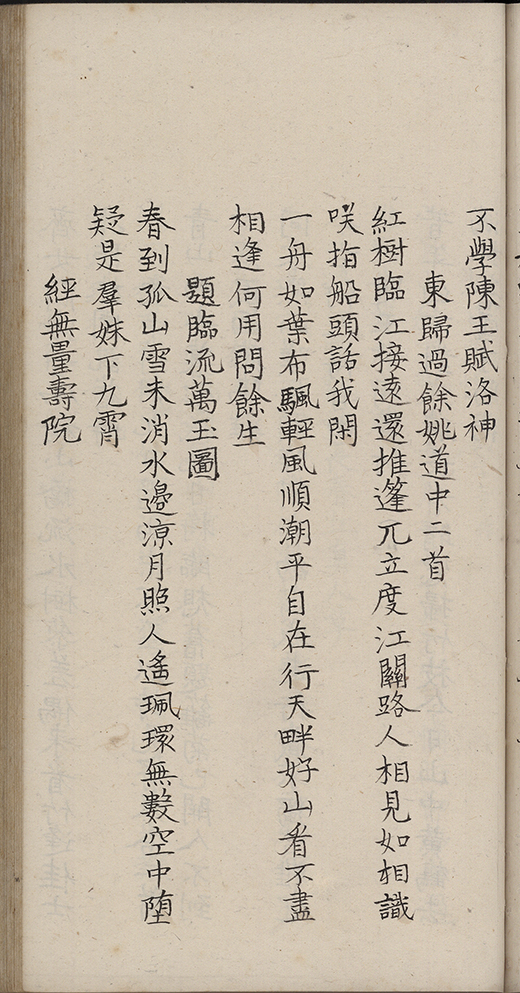 不學陳王賦洛神
東歸過餘姚道中二首
紅樹臨江接遠還推篷兀立度江關路人相見如相識
咲指船頭話我閑
一舟如葉布颿輕風順潮平自在行天畔好山看不盡
相逢何用問餘生
題臨流萬玉圖
春到孤山雪未消水邉涼月照人遙珮環無數空中堕
疑是羣姝下九霄
經無量壽院